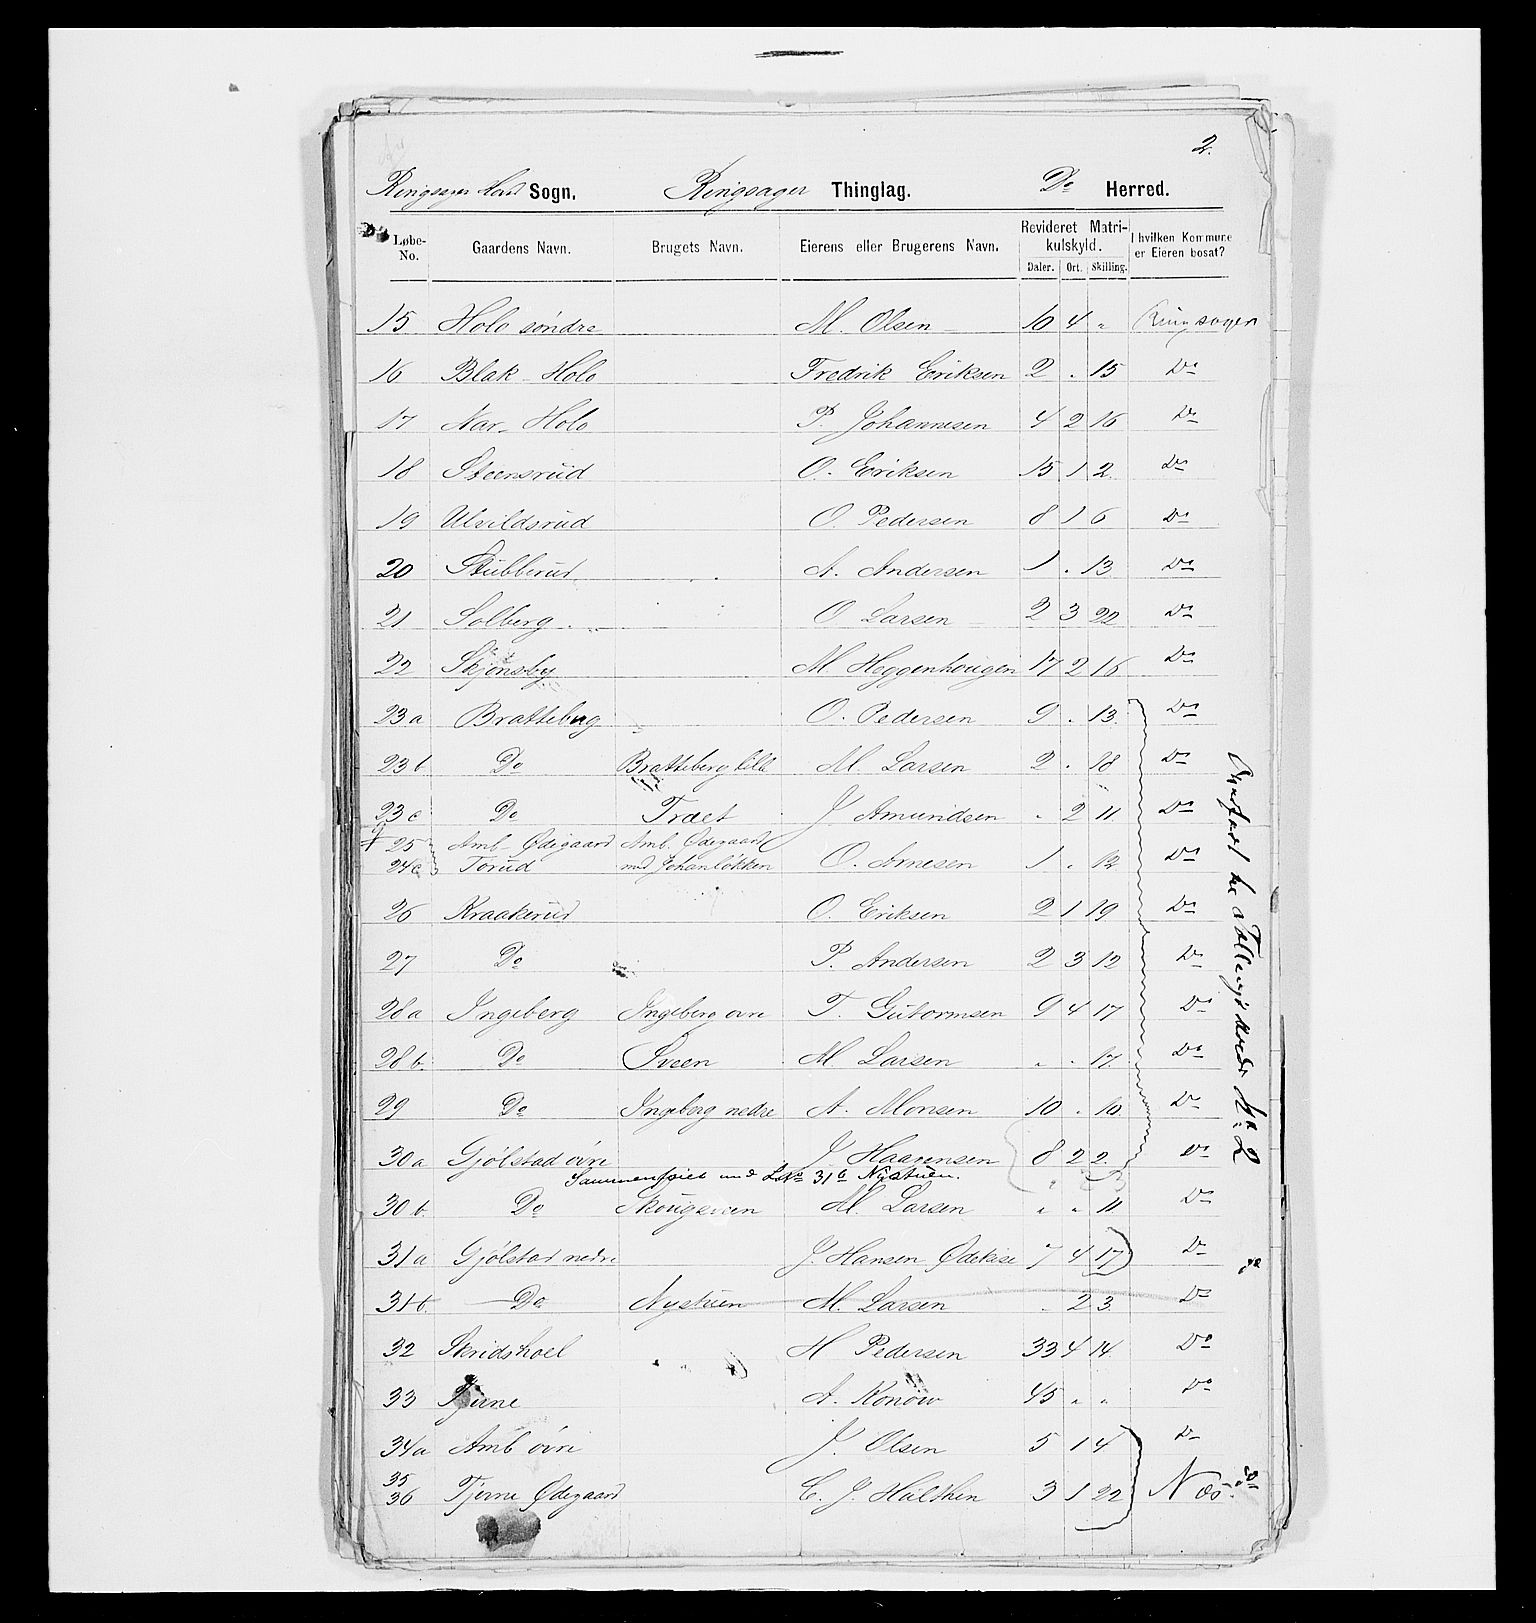 2.
Ringsager Hoved Sogn. Ringsager Thinglag. Do Herred.
Løbe-No. Gaardens Navn. Brugets Navn. Eierens eller Brugerens Navn. Revideret Matrikulskyld. Daler. Ort. Skilling. I hvilken Kommune er Eieren bosat?
15 Holo søndre M. Olsen 10 4 " Ringsager
16 Blak-Holo Fredrik Eriksen 2 . 15 Do
17 Nar-Holo P. Johannesen 4 2 16 Do
18 Steensrud O. Eriksen 15 1 2 Do
19 Ulvildsrud O. Pedersen 8 1 6 Do
20 Stubberud A. Andersen 1 . 13 Do
21 Solberg O Larsen 2 3 22 Do
22 Skjønsby M. Heggenhougen 17 2 16 Do
23a Bratteberg O. Pedersen 9 . 13 Do
23b Do Bratteberg lille M. Larsen 2 . 18 Do
23c Do Træet J Amundsen " 2 11 Do
25 Amb-Ødegaard Amb. Ødegaard
24c Torud med Johanløkken O. Arnesen 1 . 12 Do
26 Kraakerud O. Eriksen 2 1 19 Do
27 Do P. Andersen 2 3 12 Do
28a Ingeberg Ingeberg øvre T. Gutormsen 9 4 17 Do
28b. Do Sveen M. Larsen " . 17 Do
29 Do Ingeberg nedre A. Monsen 10 . 10 Do
30a Gjølstad øvre J Haarensen 8 2 2 Do
Sammenføiet med LNo 31b Nystuen.
30b. Do Skougsveen M. Larsen " " 11 Do
31a Gjølstad nedre J. Hansen Ødekise 7 4 17 Do
31b. Do Nystuen M. Larsen . 2 3 Do
32 Skridshoel H Pedersen 33 4 14 Do
33 Tjerne A. Konow 45 " " Do
34a Amb øvre J. Olsen 5 1 4 Do
35
36 Tjerne Ødegaard C. J. Halthen 3 1 22 Næs
No 2